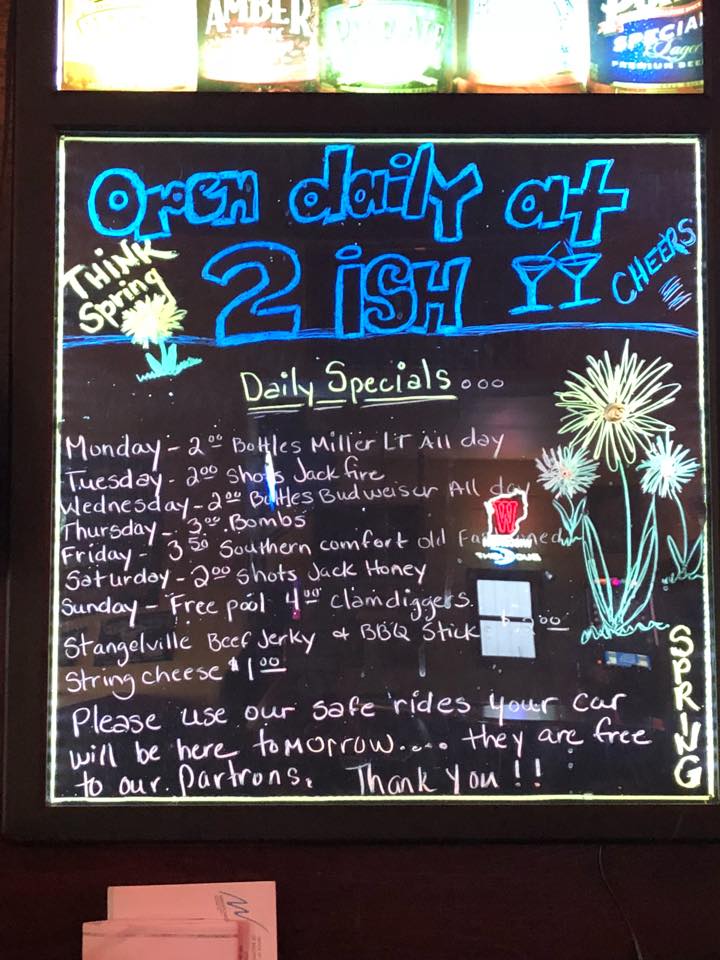 AMBER
SPECIAL
Lager
PREMIUM BEER
Open daily at
2 ISH
CHEERS
THINK
Spring
Daily Specials...
Monday - 2.00 Bottles Miller LT All day
Tuesday - 2.00 Shots Jack fire
Wednesday - 2.00 Bottles Budweiser All day
Thursday - 3.00 Bombs
Friday - 3.50 Southern comfort Old Fashioned
Saturday - 2.00 shots Jack Honey
Sunday - Free pool 4.00 clamdiggers.
Stangelville Beef Jerky & BBQ Stick
String cheese $1.00
Please use our safe rides your car
will be here tomorrow.... they are free
to our partrons. Thank You!!
SPRING
W